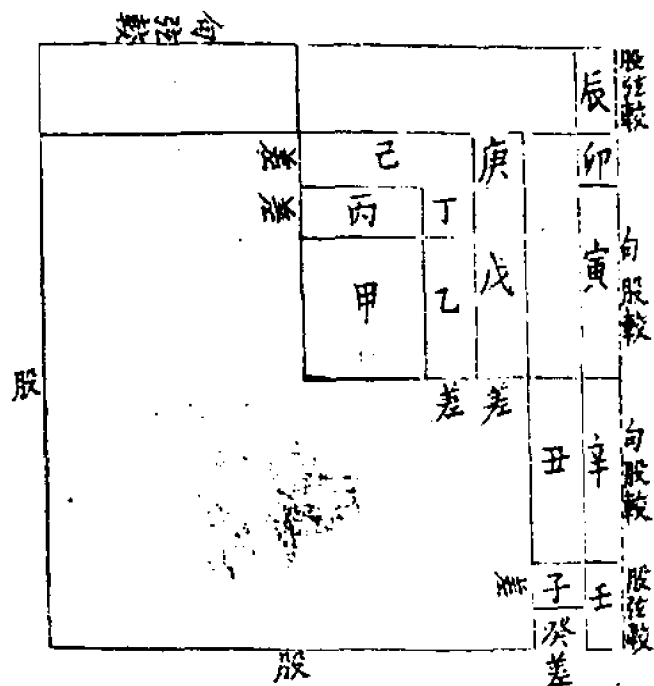 句弦較
股弦較
辰
差
己
庚
卯
差
丙
丁
句股較
甲
乙
戊
寅
股
差
差
丑
辛
句股較
差
子
壬
股弦較
癸
差
股